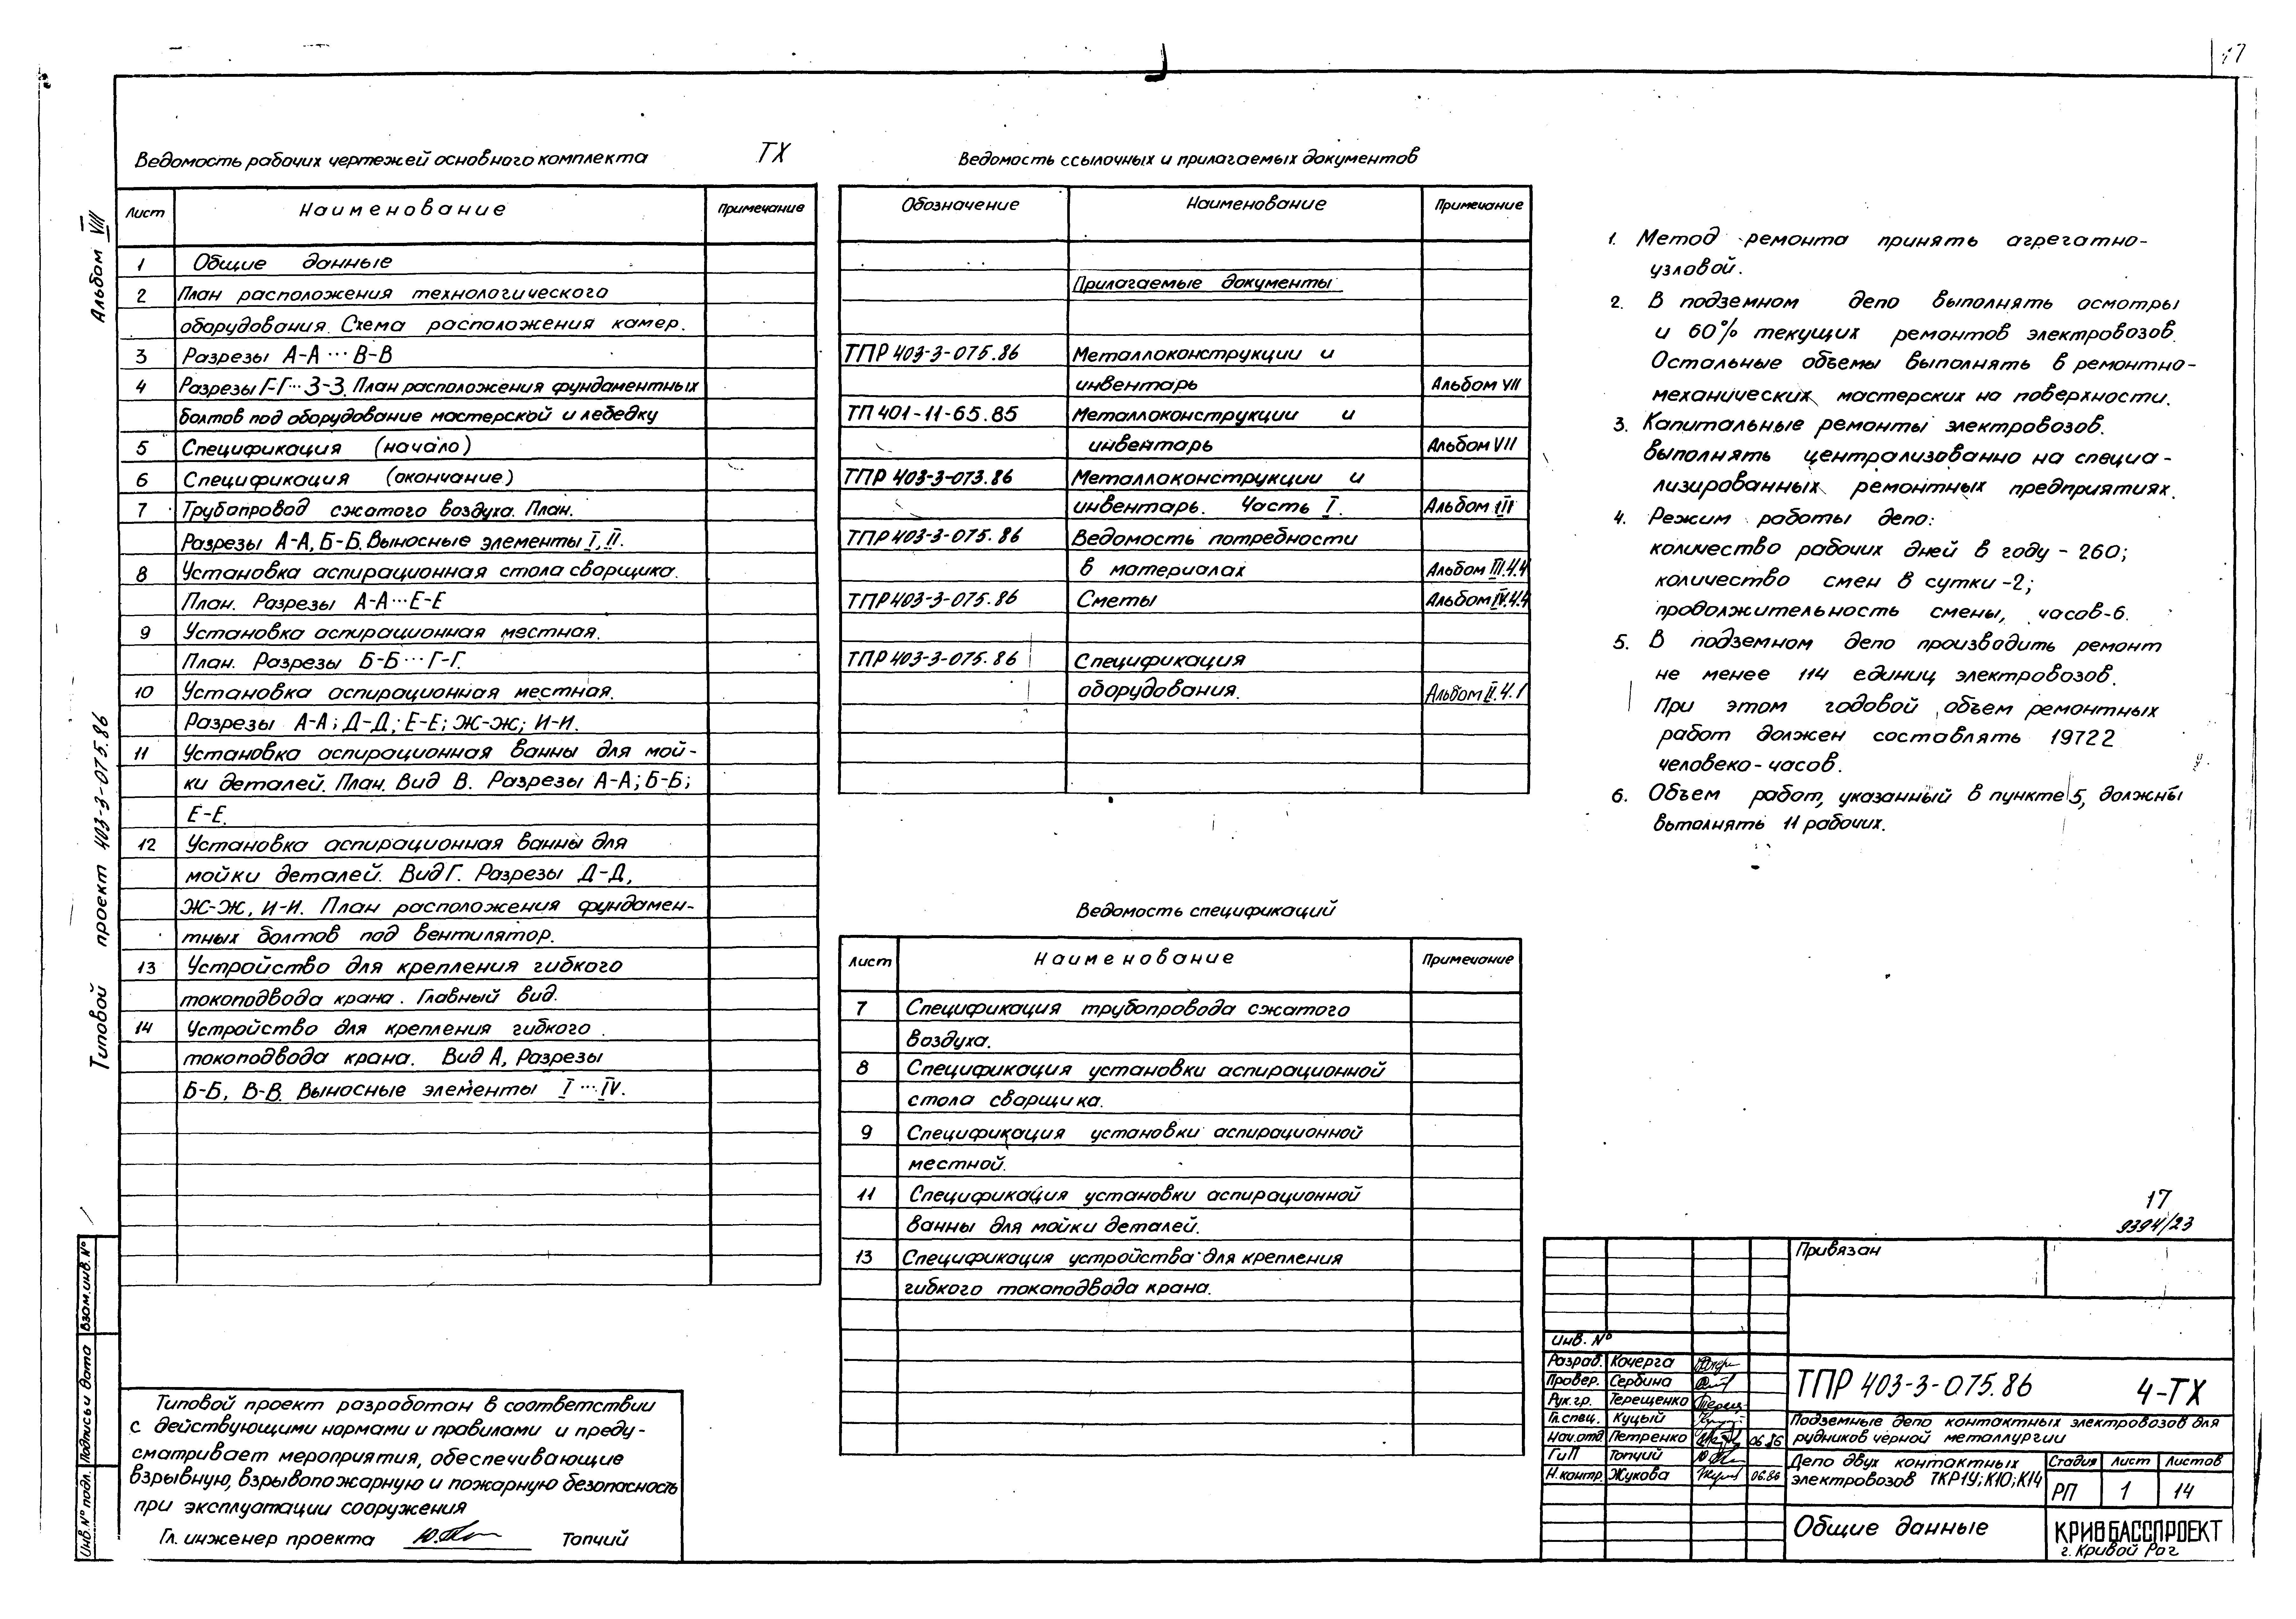 17
Ведомость рабочих чертежей основного комплекта ТХ
Лист Наименование Примечание
1 Общие данные
2 План расположения технологического
оборудования. Схема расположения камер.
3 Разрезы А-А ... В-В
4 Разрезы Г-Г... З-З. План расположения фундаментных
болтов под оборудование мастерской и лебедку
5 Спецификация (начало)
6 Спецификация (окончание)
7 Трубопровод сжатого воздуха. План.
Разрезы А-А, Б-Б. Выносные элементы I, II.
8 Установка аспирационная стола сварщика.
План. Разрезы А-А...Е-Е
9 Установка аспирационная местная.
План. Разрезы Б-Б...Г-Г.
10 Установка аспирационная местная.
Разрезы А-А; Д-Д; Е-Е; Ж-Ж; И-И.
11 Установка аспирационная ванны для мой-
ки деталей. План. Вид В. Разрезы А-А; Б-Б;
Е-Е.
12 Установка аспирационная ванны для
мойки деталей. Вид Г. Разрезы Д-Д,
Ж-Ж, И-И. План расположения фундамен-
тных болтов под вентилятор.
13 Устройство для крепления гибкого
токоподвода крана. Главный вид.
14 Устройство для крепления гибкого
токоподвода крана. Вид А, Разрезы
Б-Б, В-В. Выносные элементы I ... IV.
Типовой проект разработан в соответствии
с действующими нормами и правилами и преду-
сматривает мероприятия, обеспечивающие
взрывную, взрывопожарную и пожарную безопасность
при эксплуатации сооружения
Гл. инженер проекта Топчий
Ведомость ссылочных и прилагаемых документов
Обозначение Наименование Примечание
Прилагаемые документы
ТПР 403-3-075.86 Металлоконструкции и
инвентарь Альбом VII
ТП 401-11-65.85 Металлоконструкции и
инвентарь Альбом VII
ТПР 403-3-073.86 Металлоконструкции и
инвентарь. Часть I. Альбом III
ТПР 403-3-075.86 Ведомость потребности
в материалах Альбом III.ч.4
ТПР 403-3-075.86 Сметы Альбом IV.ч.4
ТПР 403-3-075.86 Спецификация
оборудования. Альбом II.ч.1
Ведомость спецификаций
Лист Наименование Примечание
7 Спецификация трубопровода сжатого
воздуха.
8 Спецификация установки аспирационной
стола сварщика.
9 Спецификация установки аспирационной
местной.
11 Спецификация установки аспирационной
ванны для мойки деталей.
13 Спецификация устройства для крепления
гибкого токоподвода крана.
1. Метод ремонта принять агрегатно-
узловой.
2. В подземном депо выполнять осмотры
и 60% текущих ремонтов электровозов.
Остальные объемы выполнять в ремонтно-
механических мастерских на поверхности.
3. Капитальные ремонты электровозов.
выполнять централизованно на специа-
лизированных ремонтных предприятиях.
4. Режим работы депо:
количество рабочих дней в году - 260;
количество смен в сутки -2;
продолжительность смены, часов-6.
5. В подземном депо производить ремонт
не менее 114 единиц электровозов.
При этом годовой объем ремонтных
работ должен составлять 19722
человеко-часов.
6. Объем работ, указанный в пункте 5, должны
выполнять 11 рабочих.
17
9394/23
Привязан
Инв. №
Разраб. Кочерга
Провер. Сербина
Рук.гр. Терещенко
Гл.спец. Куцый
Нач.отд. Петренко 06.86
ГиП Топчий
Н.контр. Жукова 06.86
ТПР 403-3-075.86 4-ТХ
Подземные депо контактных электровозов для
рудников черной металлургии
Депо двух контактных
электровозов ТКР1У; К10; К14
Стадия Лист Листов
РП 1 14
Общие данные
КРИВБАССПРОЕКТ
г. Кривой Рог
Альбом VIII
Типовой проект 403-3-075.86
Взам.инв.№
Подпись и дата
Инв.№ подл.